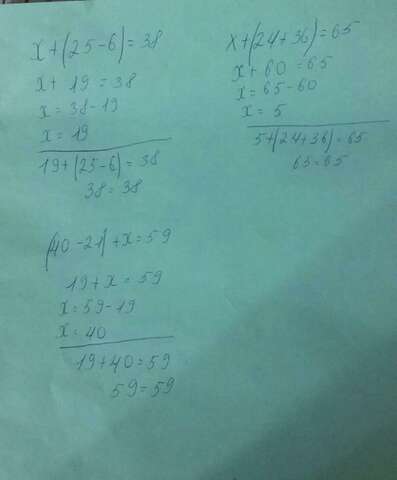 x+(25-6)=38
x+19=38
x=38-19
x=19
19+(25-6)=38
38=38
x+(24+36)=65
x+60=65
x=65-60
x=5
5+(24+36)=65
65=65
(40-21)+x=59
19+x=59
x=59-19
x=40
19+40=59
59=59